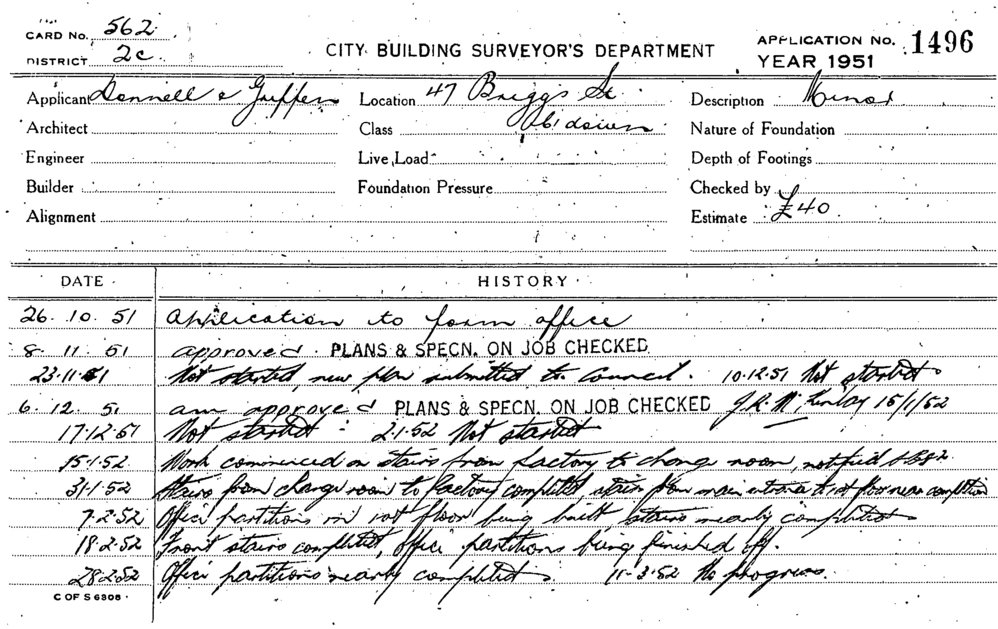 CARD No. 562
DISTRICT 2c.
CITY BUILDING SURVEYOR'S DEPARTMENT
APPLICATION No. 1496
YEAR 1951
Applicant Donnell & Griffen Location 47 Briggs St Description Minor
Architect Class C'down Nature of Foundation
Engineer Live Load Depth of Footings
Builder Foundation Pressure Checked by
Alignment Estimate £40
DATE HISTORY
26. 10. 51 Application to form office
8. 11. 51 approved. PLANS & SPECN. ON JOB CHECKED
23.11.51 Not started, new plan submitted to Council. 10.12.51 Not started
6. 12. 51 am approved PLANS & SPECN. ON JOB CHECKED 15/1/52
17.12.51 Not started. 2.1.52 Not started
15.1.52 Work commenced on stairs from factory to change room, notified
31.1.52 Stairs from change room to factory completed, stairs from main entrance to 1st floor near completion
7.2.52 Office partitions in 1st floor being built, stairs nearly completed
18.2.52 Front stairs completed, office partitions being finished off.
28.2.52 Office partitions nearly completed. 11.3.52 No progress.
C OF S 6308